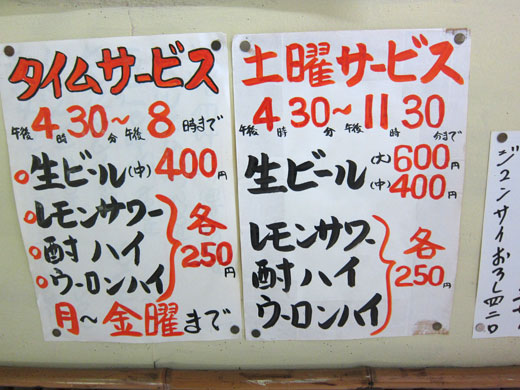 タイムサービス
午後4時30分〜午後8時まで
生ビール(中)400円
レモンサワー
酎ハイ
ウーロンハイ
各250円
月〜金曜まで
土曜サービス
午後4時30分〜午後11時30分まで
生ビール(大)600円
(中)400円
レモンサワー
酎ハイ
ウーロンハイ
各250円
ジュンサイおろし四二〇